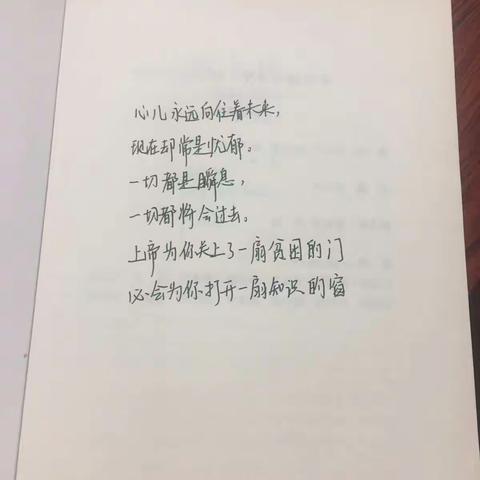 心儿永远向往着未来，
现在却常是忧郁。
一切都是瞬息，
一切都将会过去。
上帝为你关上了一扇贫困的门
必会为你打开一扇知识的窗